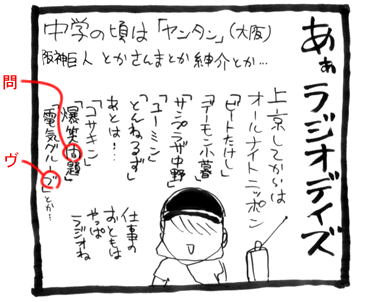 あぁ ラジオデイズ
中学の頃は「ヤンタン」(大阪)
阪神巨人 とかさんまとか 紳介とか…
上京してからは
オールナイトニッポン
「ビートたけし」
「デーモン小暮」
「サンプラザ中野」
「ユーミン」
「とんねるず」
あとは…
「コサキン」
「爆笑問題」
「電気グルーブ」とか…
問
ヴ
仕事の
おともは
やっぱ
ラジオね